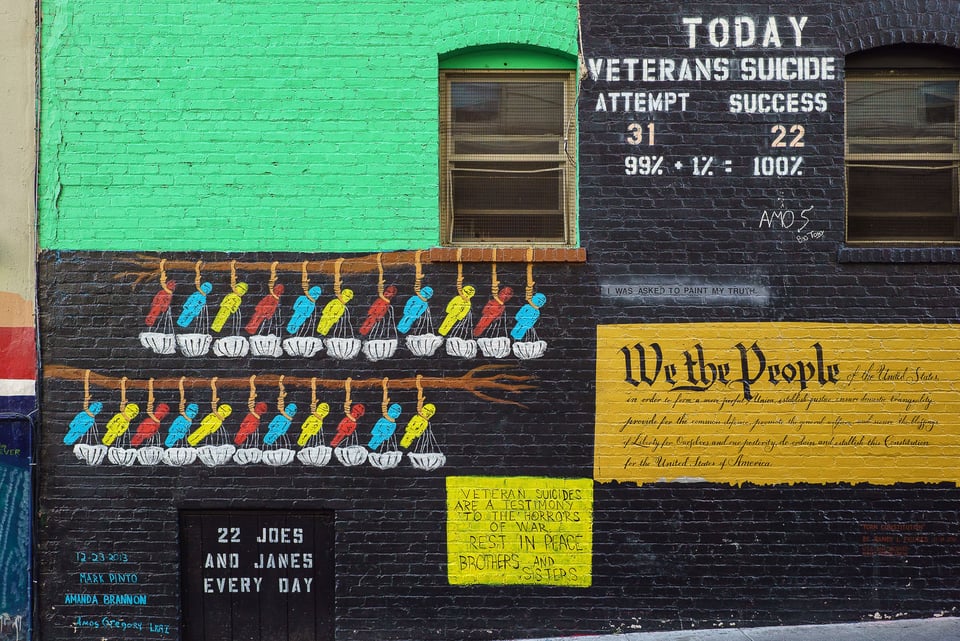 TODAY
VETERANS SUICIDE
ATTEMPT SUCCESS
31 22
99% + 1% = 100%
AMOS
I WAS ASKED TO PAINT MY TRUTH.
We the People of the United States,
in order to form a more perfect Union, establish justice, insure domestic tranquility,
provide for the common defence, promote the general welfare, and secure the blessings
of Liberty for Ourselves and our posterity, do ordain and establish this Constitution
for the United States of America.
VETERAN SUICIDES
ARE A TESTIMONY
TO THE HORRORS
OF WAR
REST IN PEACE
BROTHERS AND
SISTERS
22 JOES
AND JANES
EVERY DAY
12-23-2013
MARK PINTO
AMANDA BRANNON
AMOS GREGORY
EVER